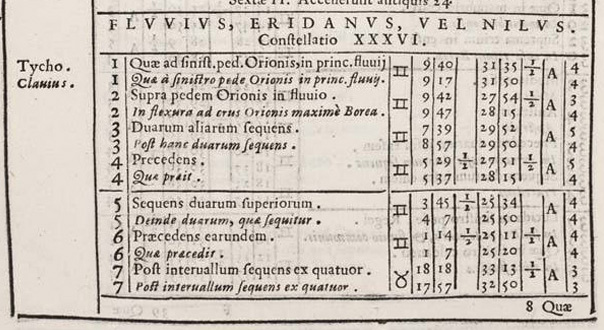 Sextæ H. Accenerunt antiquis 24
FLVVIVS, ERIDANVS, VEL NILVS.
Constellatio XXXVI.
Tycho.
Clauius.
1 Quæ ad sinist. ped. Orionis, in princ. fluuij ♊ 9 40 31 35 ½ A 4
1 Quæ à sinistro pede Orionis in princ. fluuij. 9 17 31 50 4
2 Supra pedem Orionis in fluuio. ♊ 9 42 27 54 ½ A 3
2 In flexura ad crus Orionis maximè Borea. 9 47 28 15 4
3 Duarum aliarum sequens. ♊ 7 39 29 52 A 5
3 Post hanc duarum sequens. 8 57 29 50 4
4 Precedens. ♊ 5 29 ½ 27 51 ½ A 4
4 Quæ præit. 5 37 28 15 4
5 Sequens duarum superiorum. ♊ 3 45 ½ 25 34 A 4
5 Deinde duarum, quæ sequitur. 4 7 25 50 4
6 Præcedens earundem. ♊ 1 14 ½ 25 11 ½ A 4
6 Quæ præcedit. 1 7 25 20 4
7 Post interuallum sequens ex quatuor. ♉ 18 18 33 13 ½ A 3
7 Post interuallum sequens ex quatuor. 17 57 32 50 3
8 Quæ